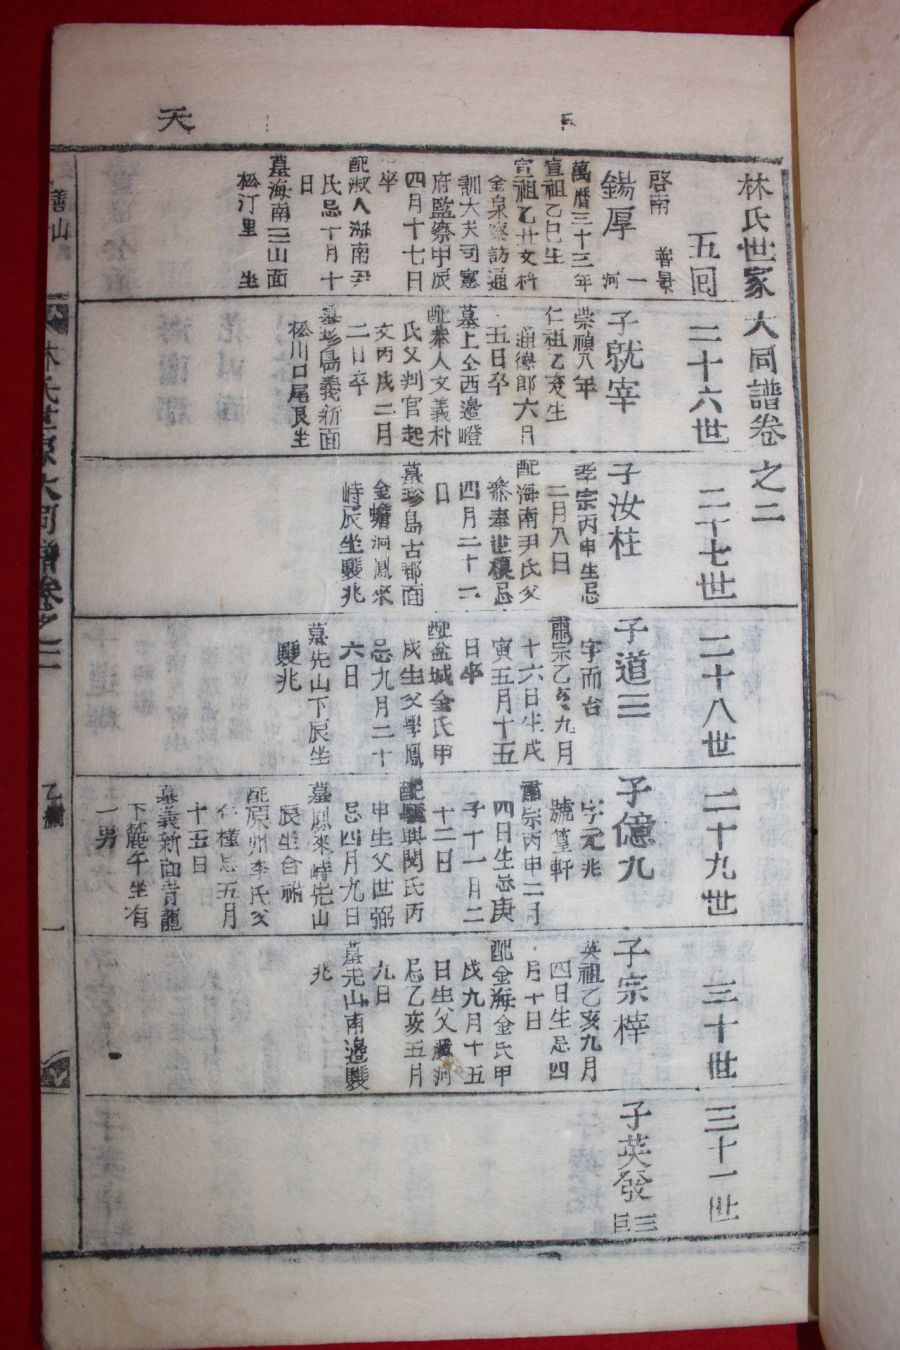 天
林氏世家大同譜卷之二
五回
二十六世
二十七世
二十八世
二十九世
三十世
三十一世
啓南
善景
錫厚
一
河
萬曆三十三年
宣祖乙巳生
宣祖乙丑文科
金泉察訪通
訓大夫司憲
府監察甲辰
四月十七日
卒
配淑人海南尹
氏忌十月十
日
墓海南三山面
松汀里 坐
子就宰
崇禎八年
仁祖乙亥生
通德郎六月
五日卒
墓上仝西邊嶝
配恭人文義朴
氏父判官起
文丙戌三月
二日卒
墓珍島義新面
松川口尾艮坐
子汝柱
孝宗丙申生忌
二月八日
配海南尹氏父
參奉世樸忌
四月二十二
日
墓珍島古郡面
金蟾洞鳳來
峙辰坐雙兆
子道三
字而台
肅宗乙亥九月
十六日生戊
寅五月十五
日卒
配盆城金氏甲
戌生父學鳳
忌九月二十
六日
墓先山下辰坐
雙兆
子億九
字元兆
號篁軒
肅宗丙申二月
四日生忌庚
子十一月二
十二日
配驪興閔氏丙
申生父世弼
忌四月九日
墓鳳來峙先山
辰坐合祔
配原州李氏父
仁權忌五月
十五日
墓義新面靑龍
下麓午坐有
一男
子宗梓
英祖乙亥九月
四日生忌四
月十日
配金海金氏甲
戌九月十五
日生父
忌乙亥五月
九日
墓先山南邊雙
兆
子英發
三
巨
林氏世家大同譜卷之二
一